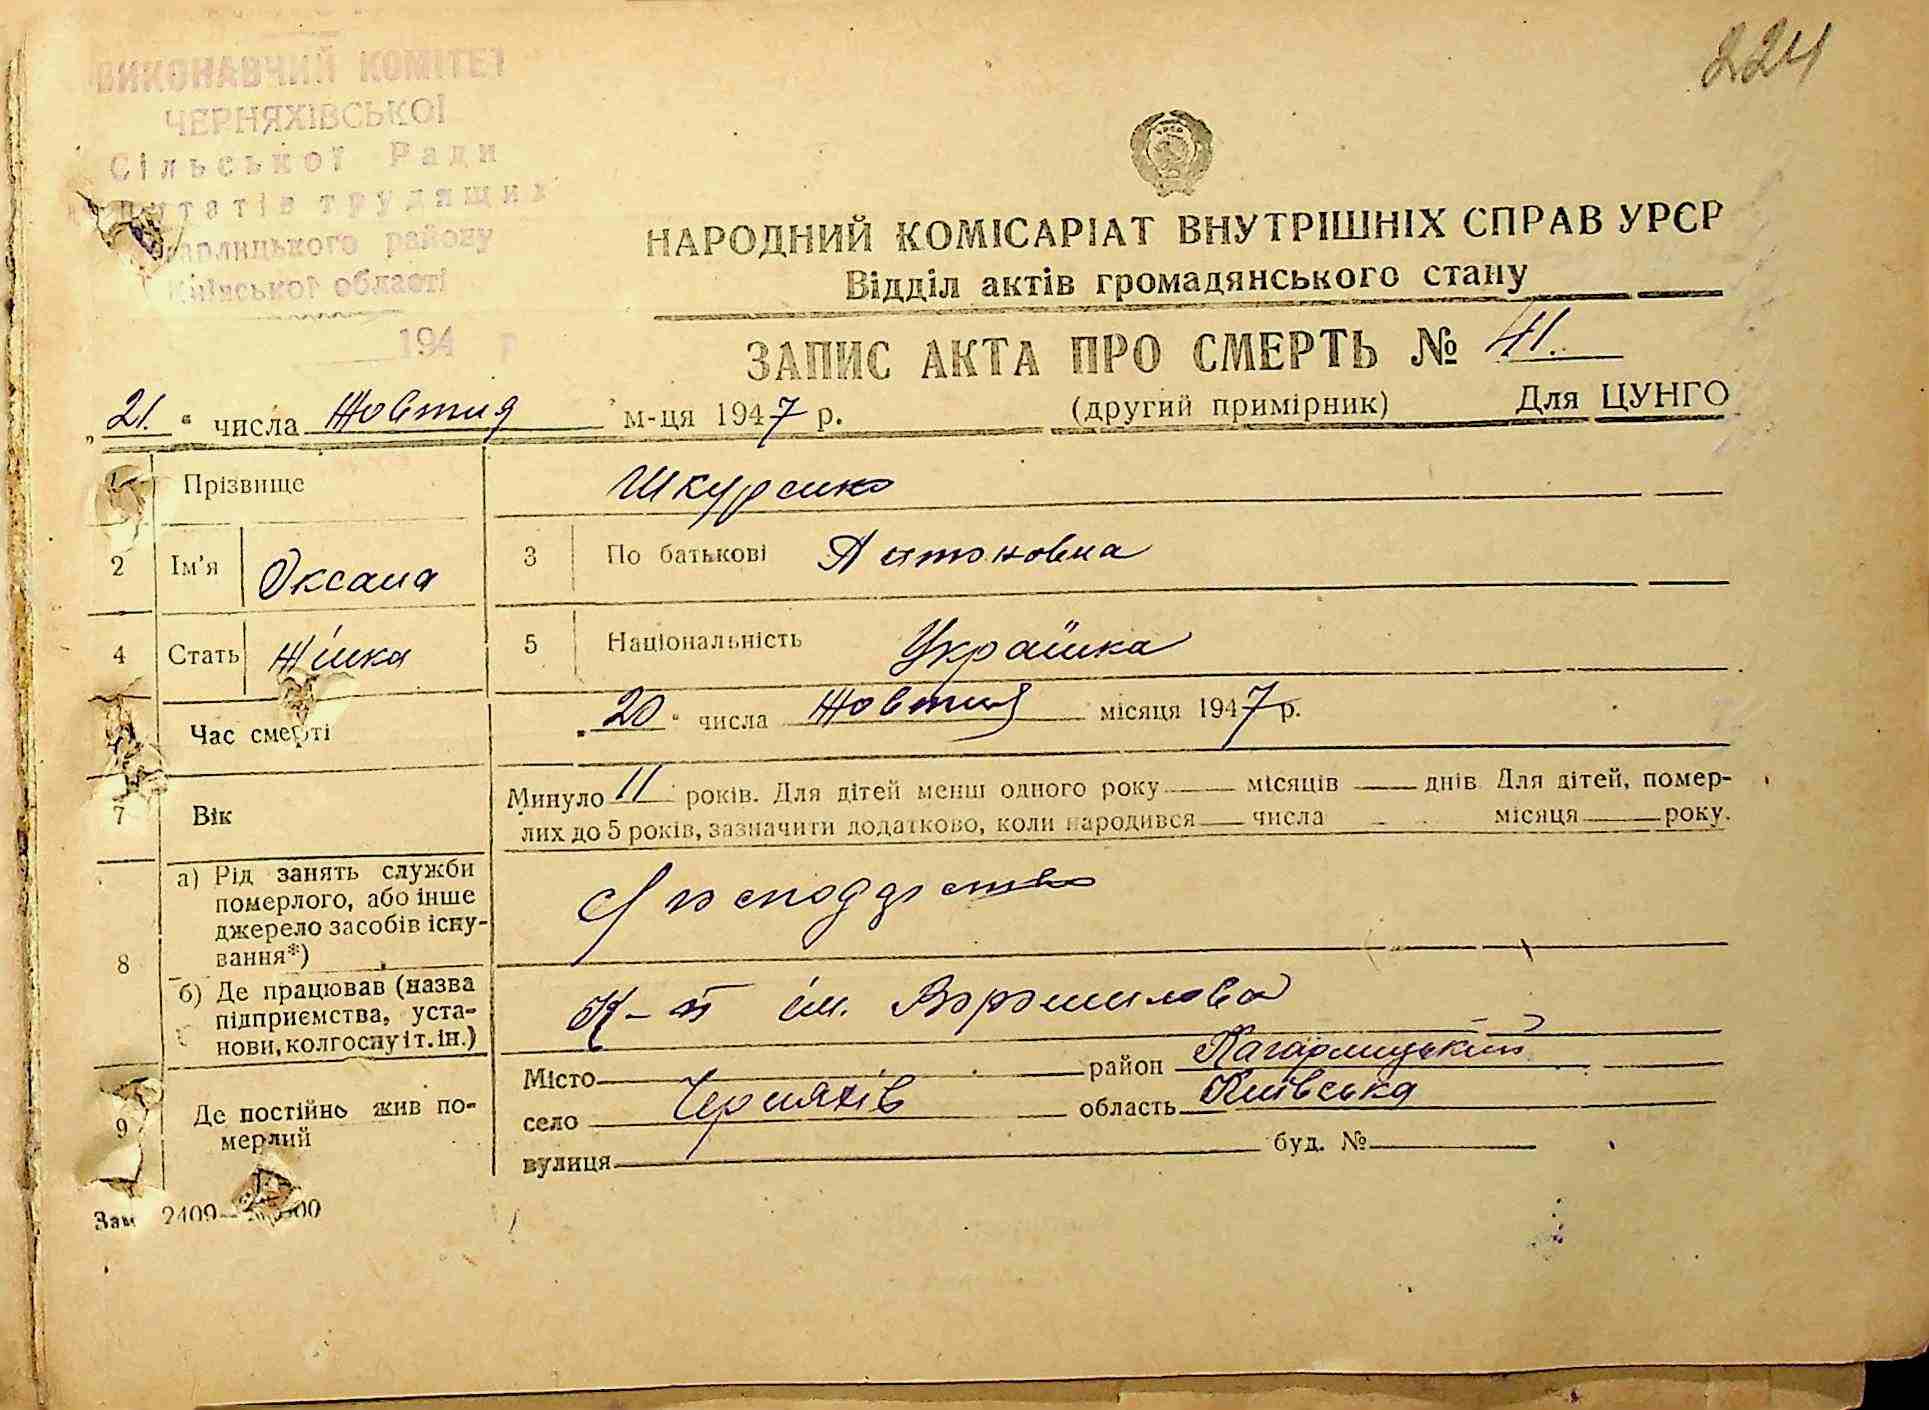 224
ВИКОНАВЧИЙ КОМІТЕТ
ЧЕРНЯХІВСЬКОЇ
Сільської Ради
депутатів трудящих
Кагарлицького району
Київської області
194 р
НАРОДНИЙ КОМІСАРІАТ ВНУТРІШНІХ СПРАВ УРСР
Відділ актів громадянського стану
ЗАПИС АКТА ПРО СМЕРТЬ № 41.
„21.“ числа Жовтня м-ця 1947 р. (другий примірник) Для ЦУНГО
Прізвище Шкуренко
2 Ім'я Оксана 3 По батькові Антоновна
4 Стать Жінка 5 Національність Українка
Час смерті „20“ числа Жовтня місяця 1947 р.
7 Вік Минуло 11 років. Для дітей менш одного року — місяців — днів Для дітей, помер-
лих до 5 років, зазначити додатково, коли народився — числа місяця — року.
8 а) Рід занять служби
померлого, або інше
джерело засобів існу-
вання*)
б) Де працював (назва
підприємства, уста-
нови, колгоспу і т. ін.)
К-п ім. Ворошилова
9 Де постійно жив по-
мерлий
Місто район Кагарлицький
село Черняхів область Київська
вулиця буд. №
Зам 2409